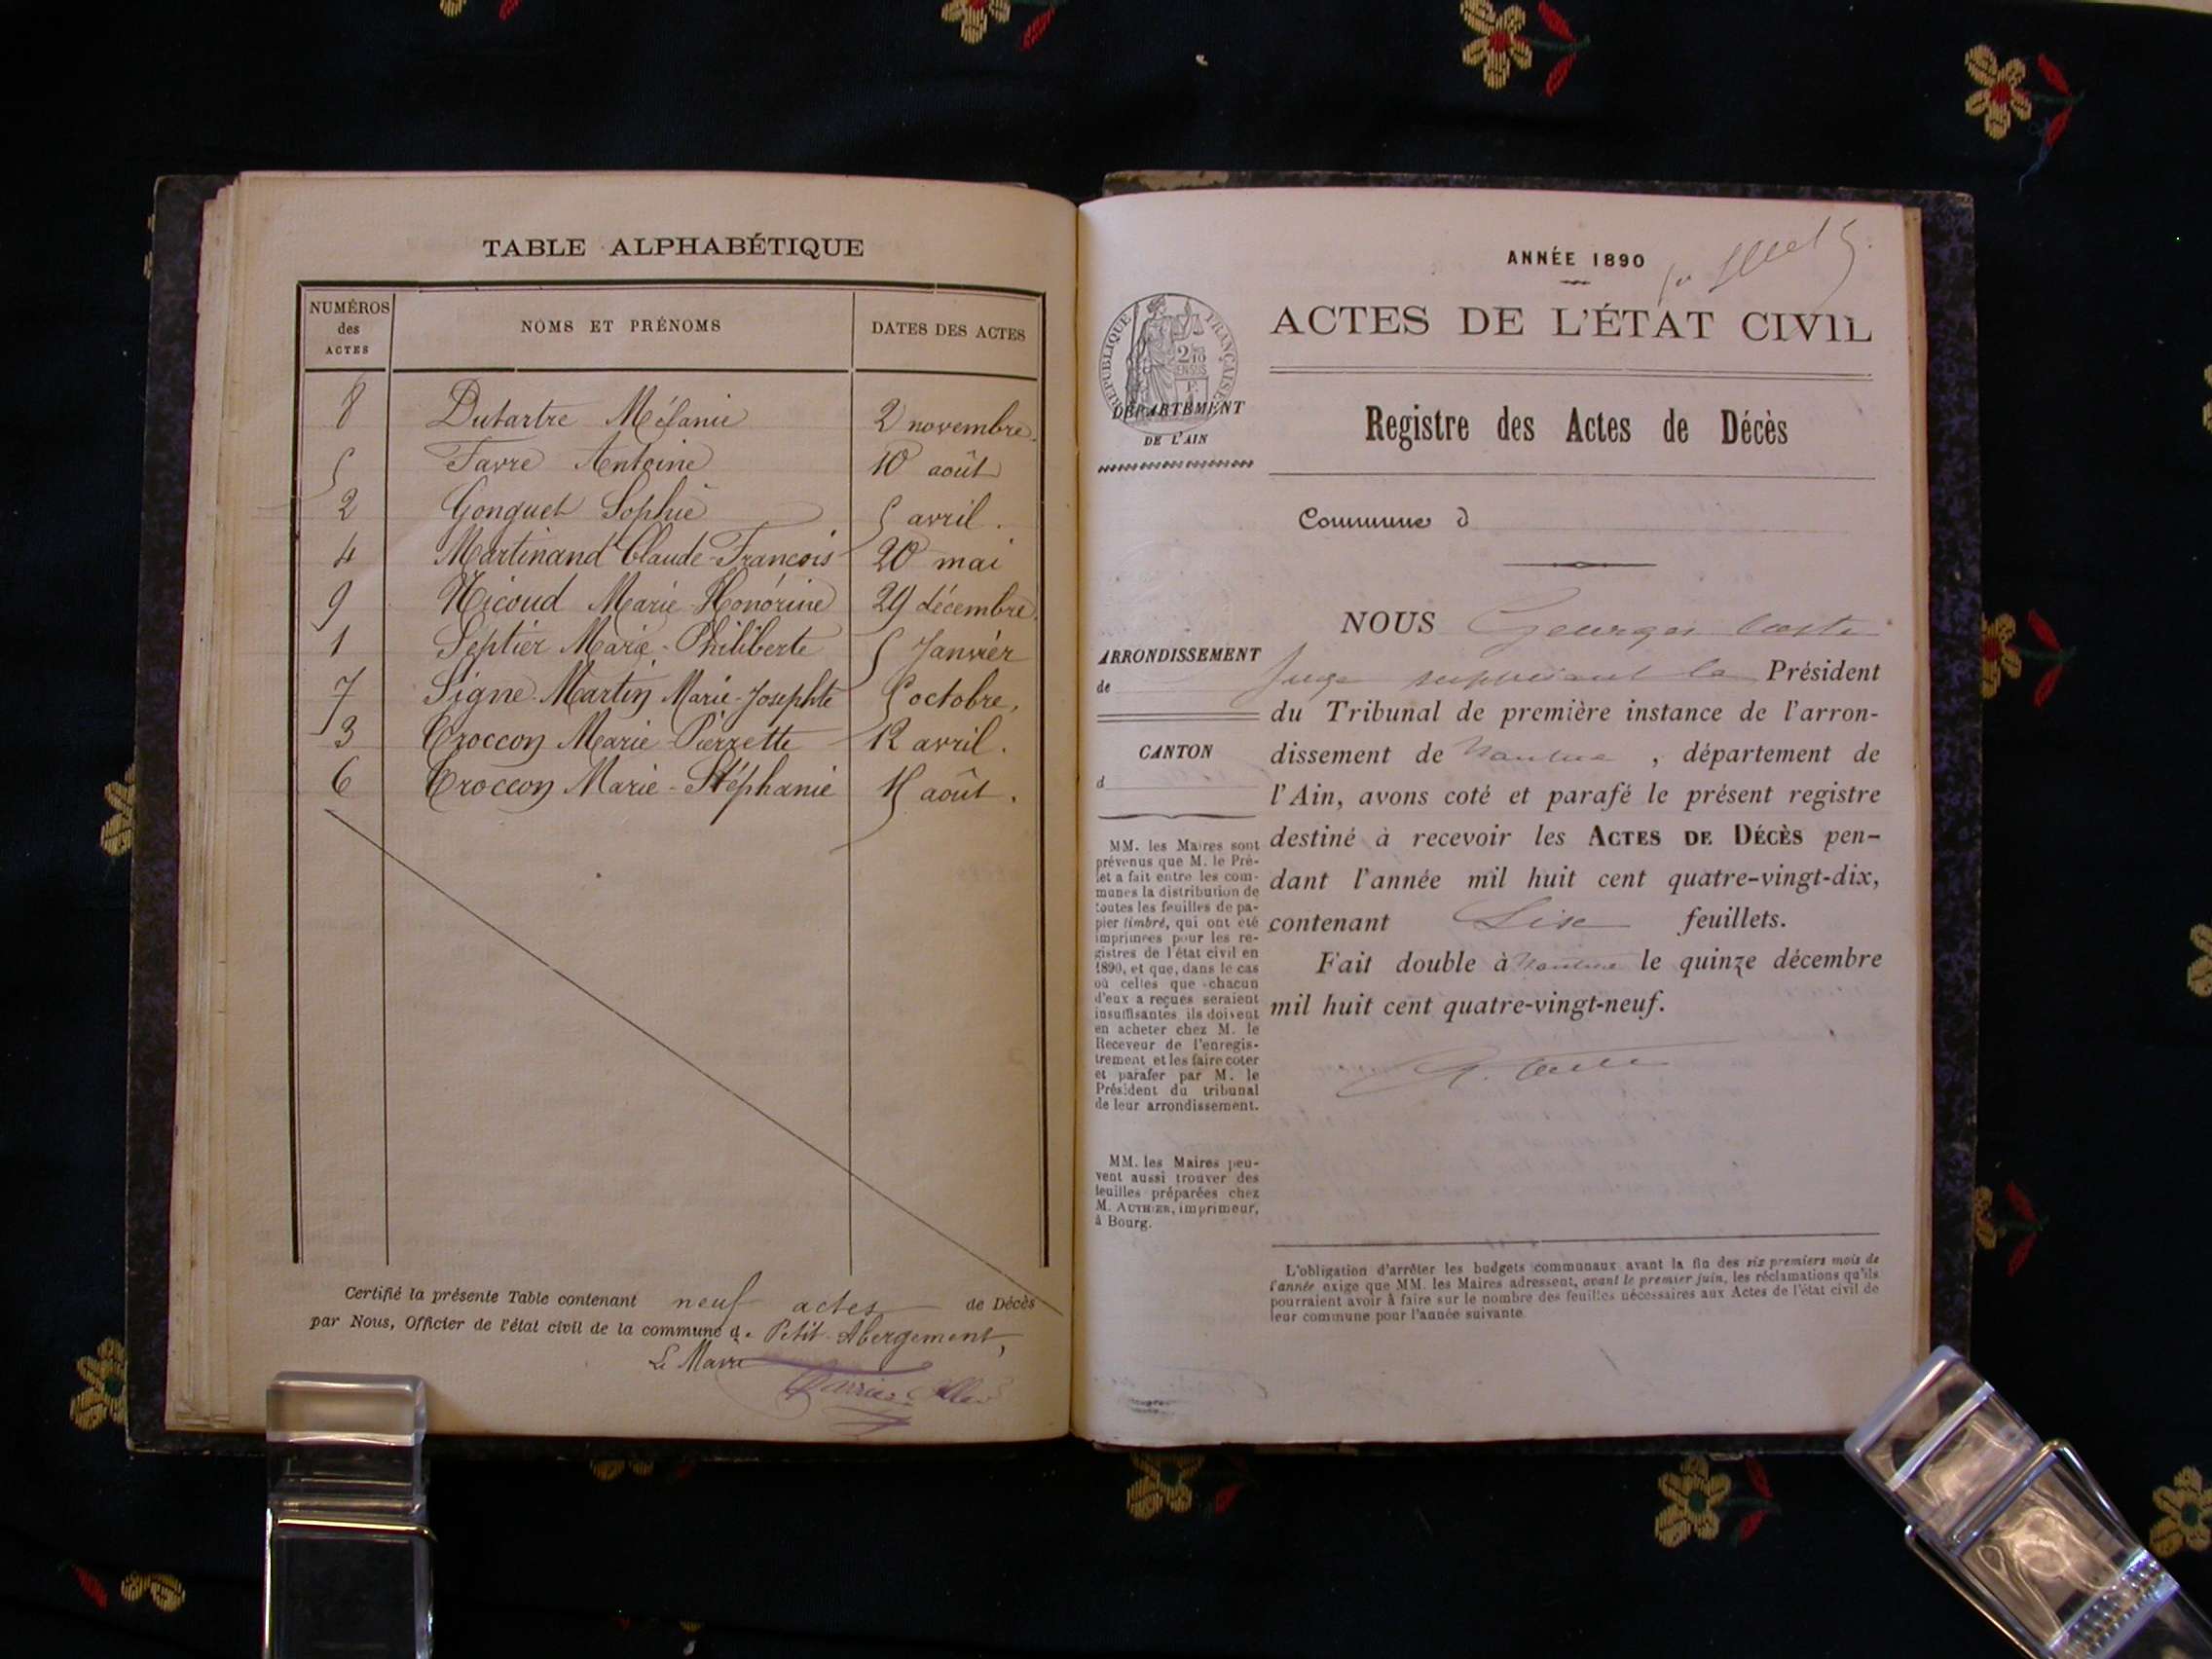 TABLE ALPHABÉTIQUE
NUMÉROS des ACTES NOMS ET PRÉNOMS DATES DES ACTES
8 Dutartre Mélanie 2 novembre.
5 Favre Antoine 10 août
2 Gonguet Sophie 5 avril.
4 Martinand Claude-François 20 mai
9 Nicoud Marie-Honorine 29 décembre.
1 Septier Marie-Philiberte 5 Janvier
7 Signe-Martin Marie-Josephte 5 octobre,
3 Troccon Marie-Pierrette 12 avril.
6 Troccon Marie-Stéphanie 15 août.
Certifié la présente Table contenant neuf actes de Décès
par Nous, Officier de l'état civil de la commune de Petit-Abergement,
Le Maire
ANNÉE 1890
RÉPUBLIQUE FRANÇAISE
ACTES DE L'ÉTAT CIVIL
DÉPARTEMENT
DE L'AIN
Registre des Actes de Décès
Commune d
NOUS Georges
ARRONDISSEMENT
de
Juge suppléant le Président
du Tribunal de première instance de l'arron-
CANTON
d
dissement de Nantua, département de
l'Ain, avons coté et parafé le présent registre
destiné à recevoir les ACTES DE DÉCÈS pen-
dant l'année mil huit cent quatre-vingt-dix,
contenant Six feuillets.
Fait double à Nantua le quinze décembre
mil huit cent quatre-vingt-neuf.
MM. les Maires sont
prévenus que M. le Pré-
fet a fait entre les com-
munes la distribution de
toutes les feuilles de pa-
pier timbré, qui ont été
imprimées pour les re-
gistres de l'état civil en
1890, et que, dans le cas
où celles que chacun
d'eux a reçues seraient
insuffisantes ils doivent
en acheter chez M. le
Receveur de l'enregis-
trement et les faire coter
et parafer par M. le
Président du tribunal
de leur arrondissement.
MM. les Maires peu-
vent aussi trouver des
feuilles préparées chez
M. AUTHIER, imprimeur,
à Bourg.
L'obligation d'arrêter les budgets communaux avant la fin des six premiers mois de
l'année exige que MM. les Maires adressent, avant le premier juin, les réclamations qu'ils
pourraient avoir à faire sur le nombre des feuilles nécessaires aux Actes de l'état civil de
leur commune pour l'année suivante